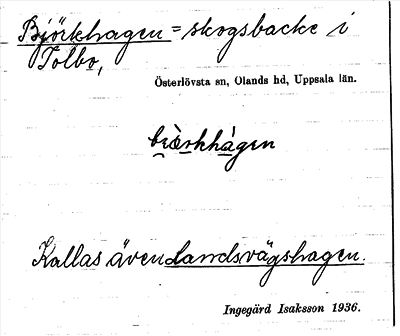 Björkhagen = skogsbacke i
Tolbo,
Österlövsta sn, Olands hd, Uppsala län.
Kallas även Landsvägshagen.
Ingegärd Isaksson 1936.